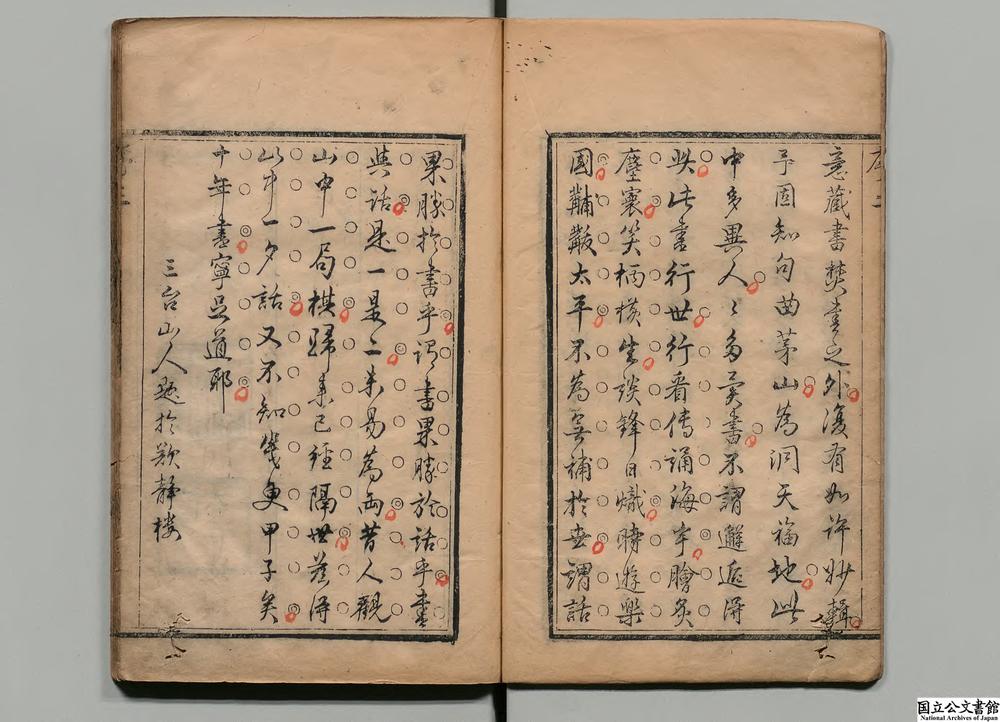 意藏書焚書之外復有如許妙輯
予固知句曲茅山為洞天福地此
中多異人〻多異書不謂邂逅得
此此書行世行看傳誦海宇膾炙
塵寰笑柄橫生談鋒日熾時遊樂
國黼黻太平不為無補於世謂話
果勝於書乎謂書果勝於話乎書
與話是一是二未易為兩昔人觀
山中一局棋歸來已經隔世茲得
此中一夕話又不知幾更甲子矣
十年書寧足道耶
三台山人題於歎靜樓
国立公文書館
National Archives of Japan